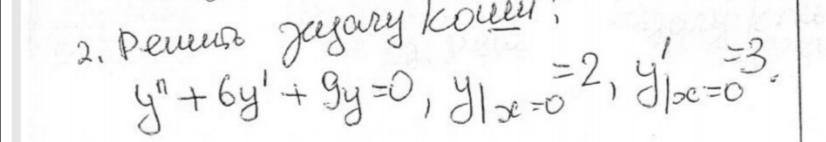 2. Решить задачу Коши:
y'' + 6y' + 9y = 0, y|x=0 = 2, y'|x=0 = 3.